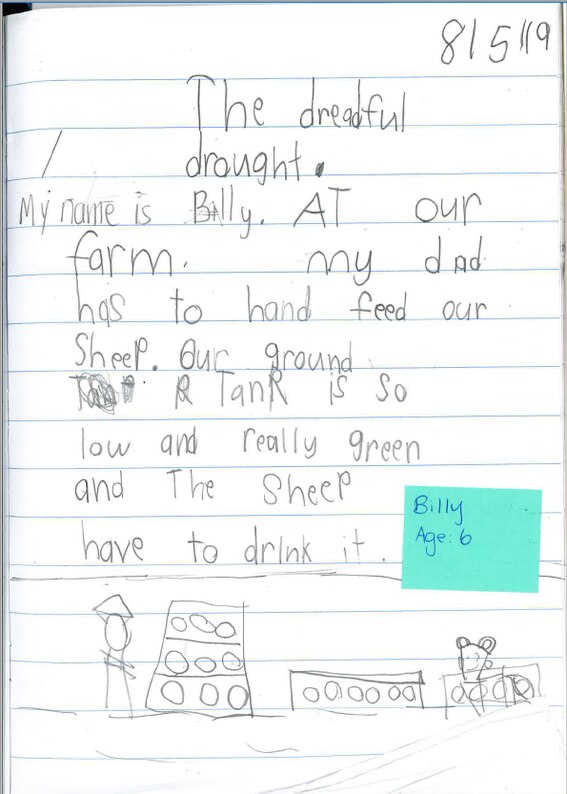 8/5/19
The dreadful
drought.
My name is Billy. AT our
farm. my dad
has to hand feed our
Sheep. Our ground
TanK is so
low and really green
and The Sheep
have to drink it.
Billy
Age: 6